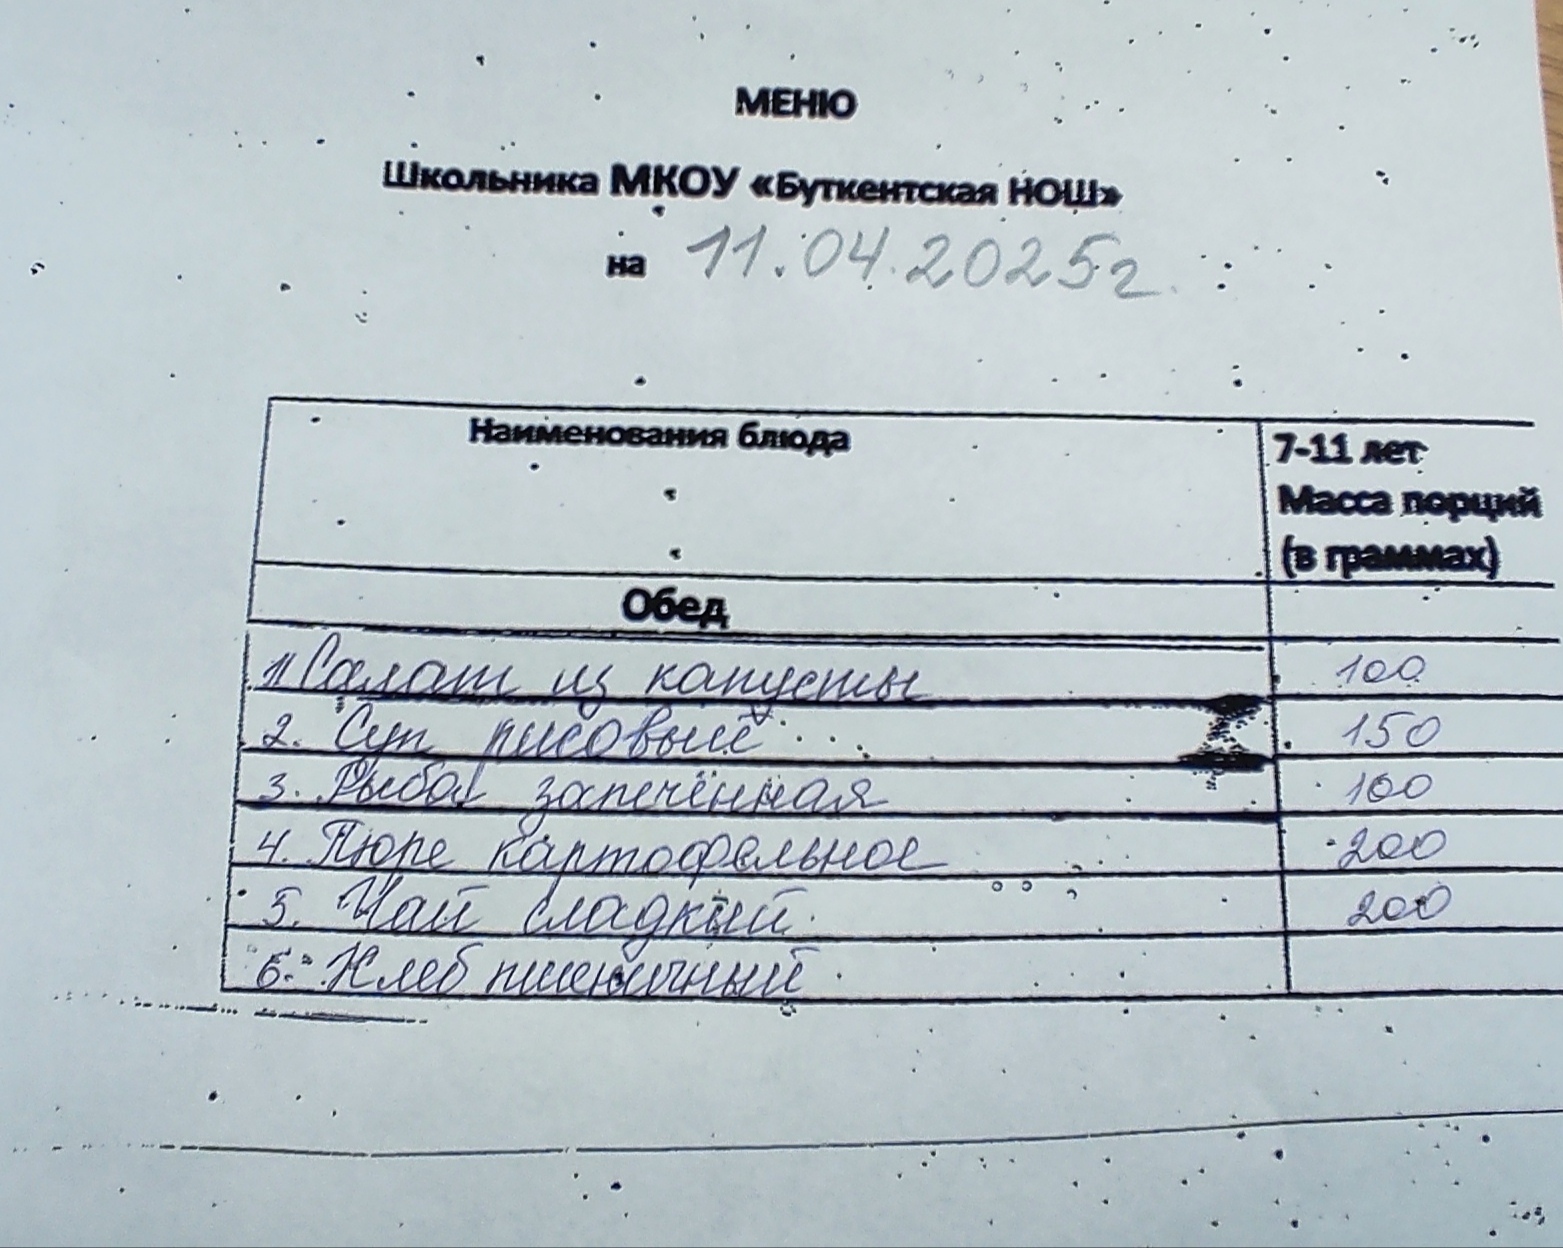 МЕНЮ
Школьника МКОУ «Буткентская НОШ»
на 11.04.2025г.
Наименования блюда
7-11 лет
Масса порций
(в граммах)
Обед
1) Салат из капусты 100
2. Суп рисовый 150
3. Рыба запечённая 100
4. Пюре картофельное 200
5. Чай сладкий 200
6. Хлеб пшеничный